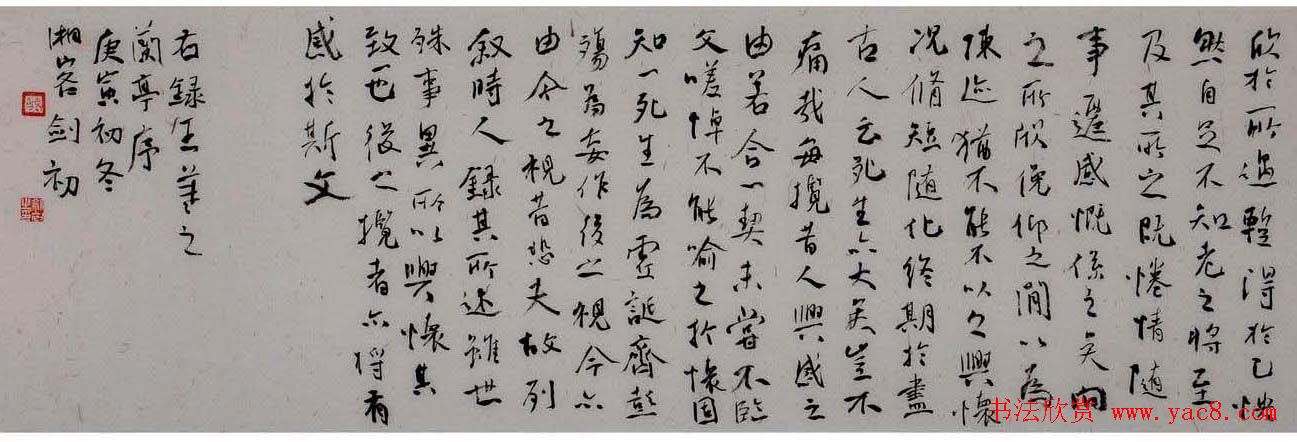 欣於所遇暫得於己怏
然自足不知老之將至
及其所之既惓情隨
事遷感慨係之矣向
之所欣俛仰之間以為
陳迹猶不能不以之興懷
況脩短隨化終期於盡
古人云死生亦大矣豈不
痛哉每攬昔人興感之
由若合一契未嘗不臨
文嗟悼不能喻之於懷固
知一死生為虛誕齊彭
殤為妄作後之視今亦
由今之視昔悲夫故列
敘時人錄其所述雖世
殊事異所以興懷其
致一也後之攬者亦將有
感於斯文
右錄王羲之
蘭亭序
庚寅初冬
湘客劍初
书法欣赏 www.yac8.com